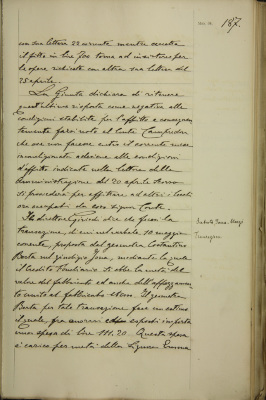 187.
con sua lettera 22 corrente mentre accetta
il fitto in lire 700 torna ad insistere per
le opere richieste con altra sua lettera del
25 aprile.
La Giunta dichiara di ritenere
quest'ultima risposta come negativa alle
condizioni stabilite per l'affitto e conseguen
temente farà noto al Conte
che ove non facesse entro il corrente mese
incondizionata adesione alle condizioni
d'affitto indicate nella lettera della
Amministrazione del 20 aprile scorso
si procederà per affittare ad altri i locali
ora occupati da esso signor Conte.
Il direttore dice che presa la
transazione, di cui nel verbale 10 maggio
corrente, proposta dal geometra Costantino
Berta sul giudizio Jona, mediante la quale
il Credito Fondiario si ebbe la metà del
valore del fabbricato ed anche dell'appezzamen
to unito al fabbricato stesso. Il geometra
Berta per tale transazione fece un
il quale, fra onorari ed esposti importa
una spesa di lire 111.20 Questa spesa
si carica per metà della Signora Emma
Transazione